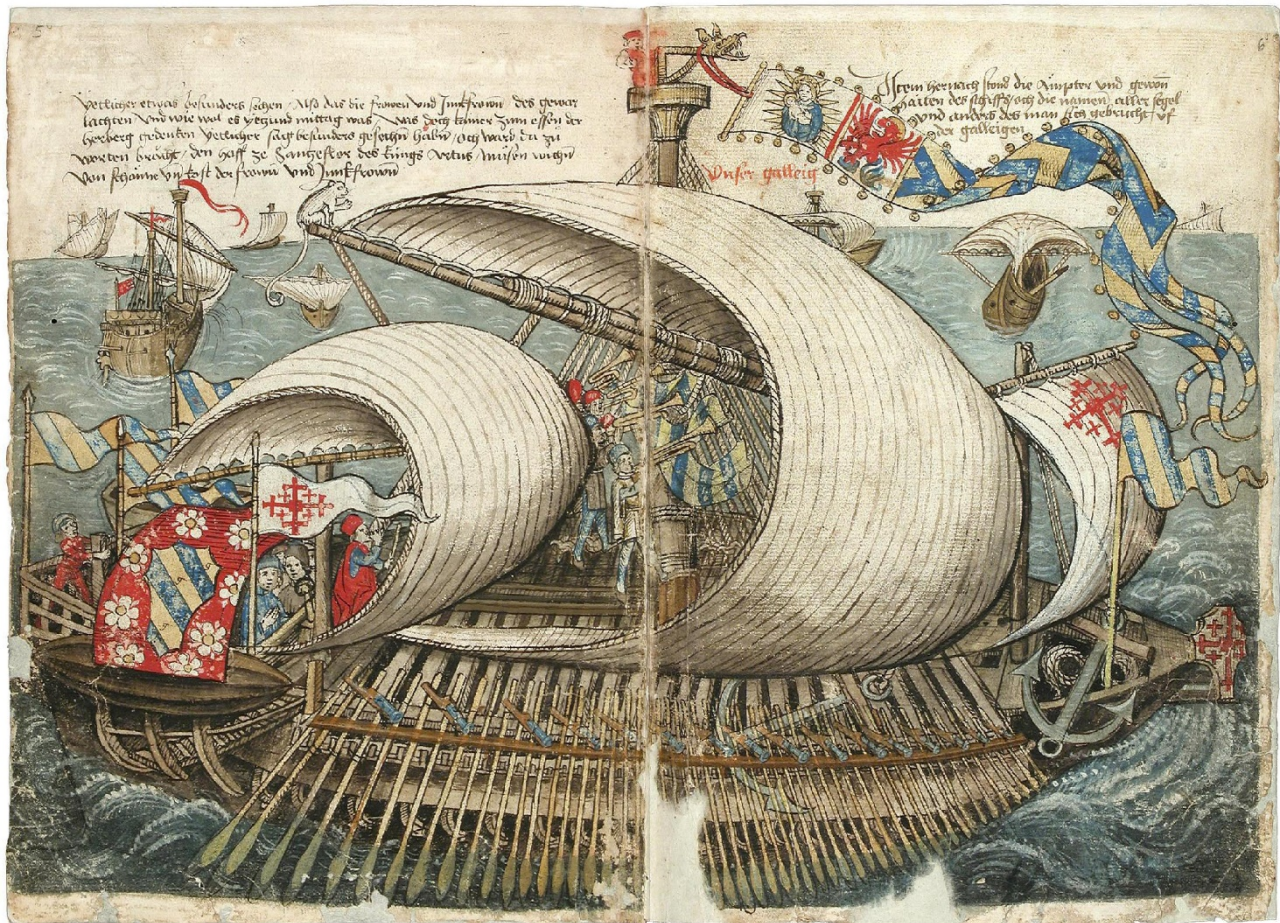 5
Yetlicher etwas besunders sechen Also das die frowen und Junkfrowen des gewar
lachten Und wie wol es yezund mittag was / Was doch kainer zum essen in der
herberg Yetlicher sagt besunders gesechen haben / Och ward da zu
worten brucht / den hoff ze des kungs
Von schöne und der frowen und Junkfrowen
6
Item hernach stond die Ampter und gewon
haiten des schiffs / och die namen aller segel
und anders des man sich gebrucht uf
der galleigen
Unser galleig